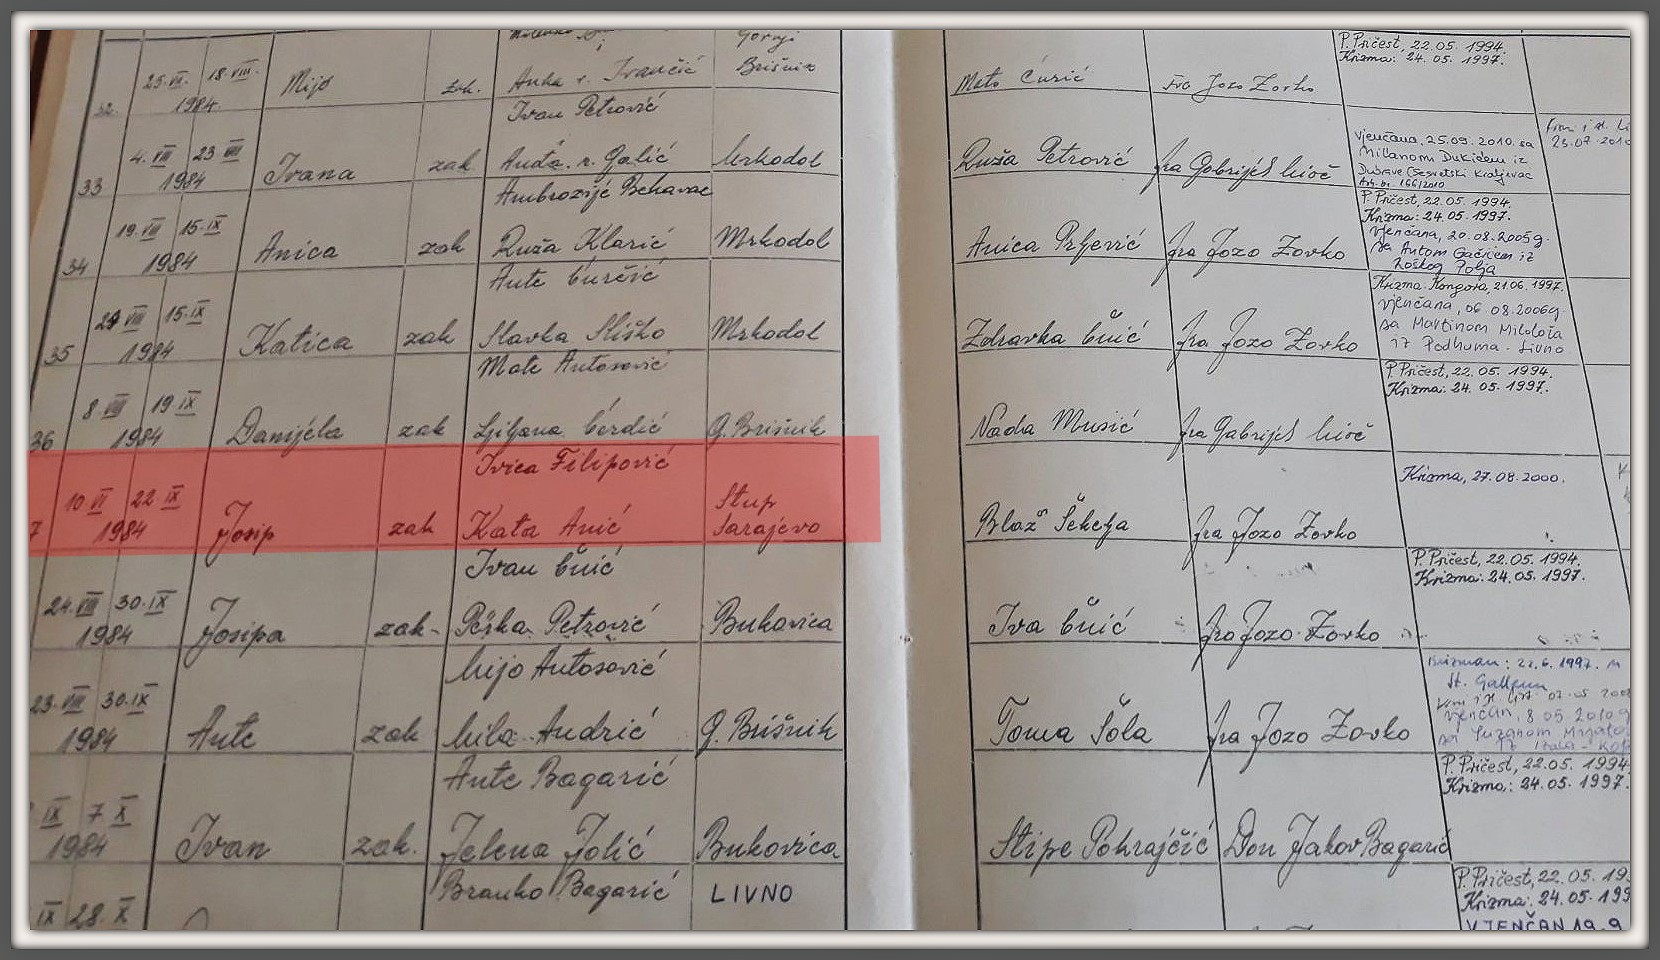 Gornji
25.VII. 18.VIII. Mijo zak. Anka r. Ivančić Brišnik Mato Ćurić Fra Jozo Zovko P. Pričest, 22.05. 1994.
Krizma: 24.05. 1997.
32 1984.
Ivan Petrović
4.VIII 23.VIII Ivana zak. Anđa r. Galić Mrkodol Ruža Petrović fra Gabrijel Mioč Vjenčana, 25.09.2010. sa
33 1984 Milanom Dukićem iz
Dubrave (Sesvetski Kraljevac
166/2010
Ambrozije Bekavac P. Pričest, 22.05.1994.
Krizma: 24.05.1997.
19.VIII 15.IX Anica zak Ruža Klarić Mrkodol Anica Prljević fra Jozo Zovko Vjenčana, 20.08.2005g.
34 1984 sa Antom Gačićem iz
Roškog Polja
Ante Ćurčić Krizma. Kongora, 21.06. 1997.
29 VIII 15.IX Katica zak Slavka Sliško Mrkodol Zdravka Ćuić fra Jozo Zovko Vjenčana, 06 08.2006g.
35 1984 sa Martinom Milološa
iz Podhuma - Livno
Mate Antosović P. Pričest, 22.05. 1994.
Krizma: 24.05. 1997.
8.VIII 19 IX Danijela zak Ljiljana Ćerdić G. Brišnik Nada Musić fra Gabrijel Mioč
36 1984
Ivica Filipović Krizma, 27.08.2000.
10.VI 22.IX Josip zak Kata Anić Stup
Sarajevo Blaž Šekelja fra Jozo Zovko
7 1984
Ivan Ćuić P. Pričest, 22.05. 1994.
Krizma: 24.05. 1997.
24.VIII 30.IX Josipa zak- Peška Petrović Bukovica Iva Ćuić fra Jozo Zovko
1984
Mijo Antosović 22.6. 1997.
St. Gallenu
23.VIII 30.IX Ante zak Mila Andrić G. Brišnik Toma Šola fra Jozo Zovko Vjenčan, 8 05.2010g
1984
Ante Bagarić P. Pričest, 22.05. 1994.
Krizma: 24.05. 1997.
IX 7 X Ivan zak. Jelena Jolić Bukovica Stipe Pokrajčić Don Jakov Bagarić
1984
Branko Bagarić LIVNO P. Pričest, 22.05. 199
Krizma: 24.05. 199
IX 28.X VJENČAN 19.9